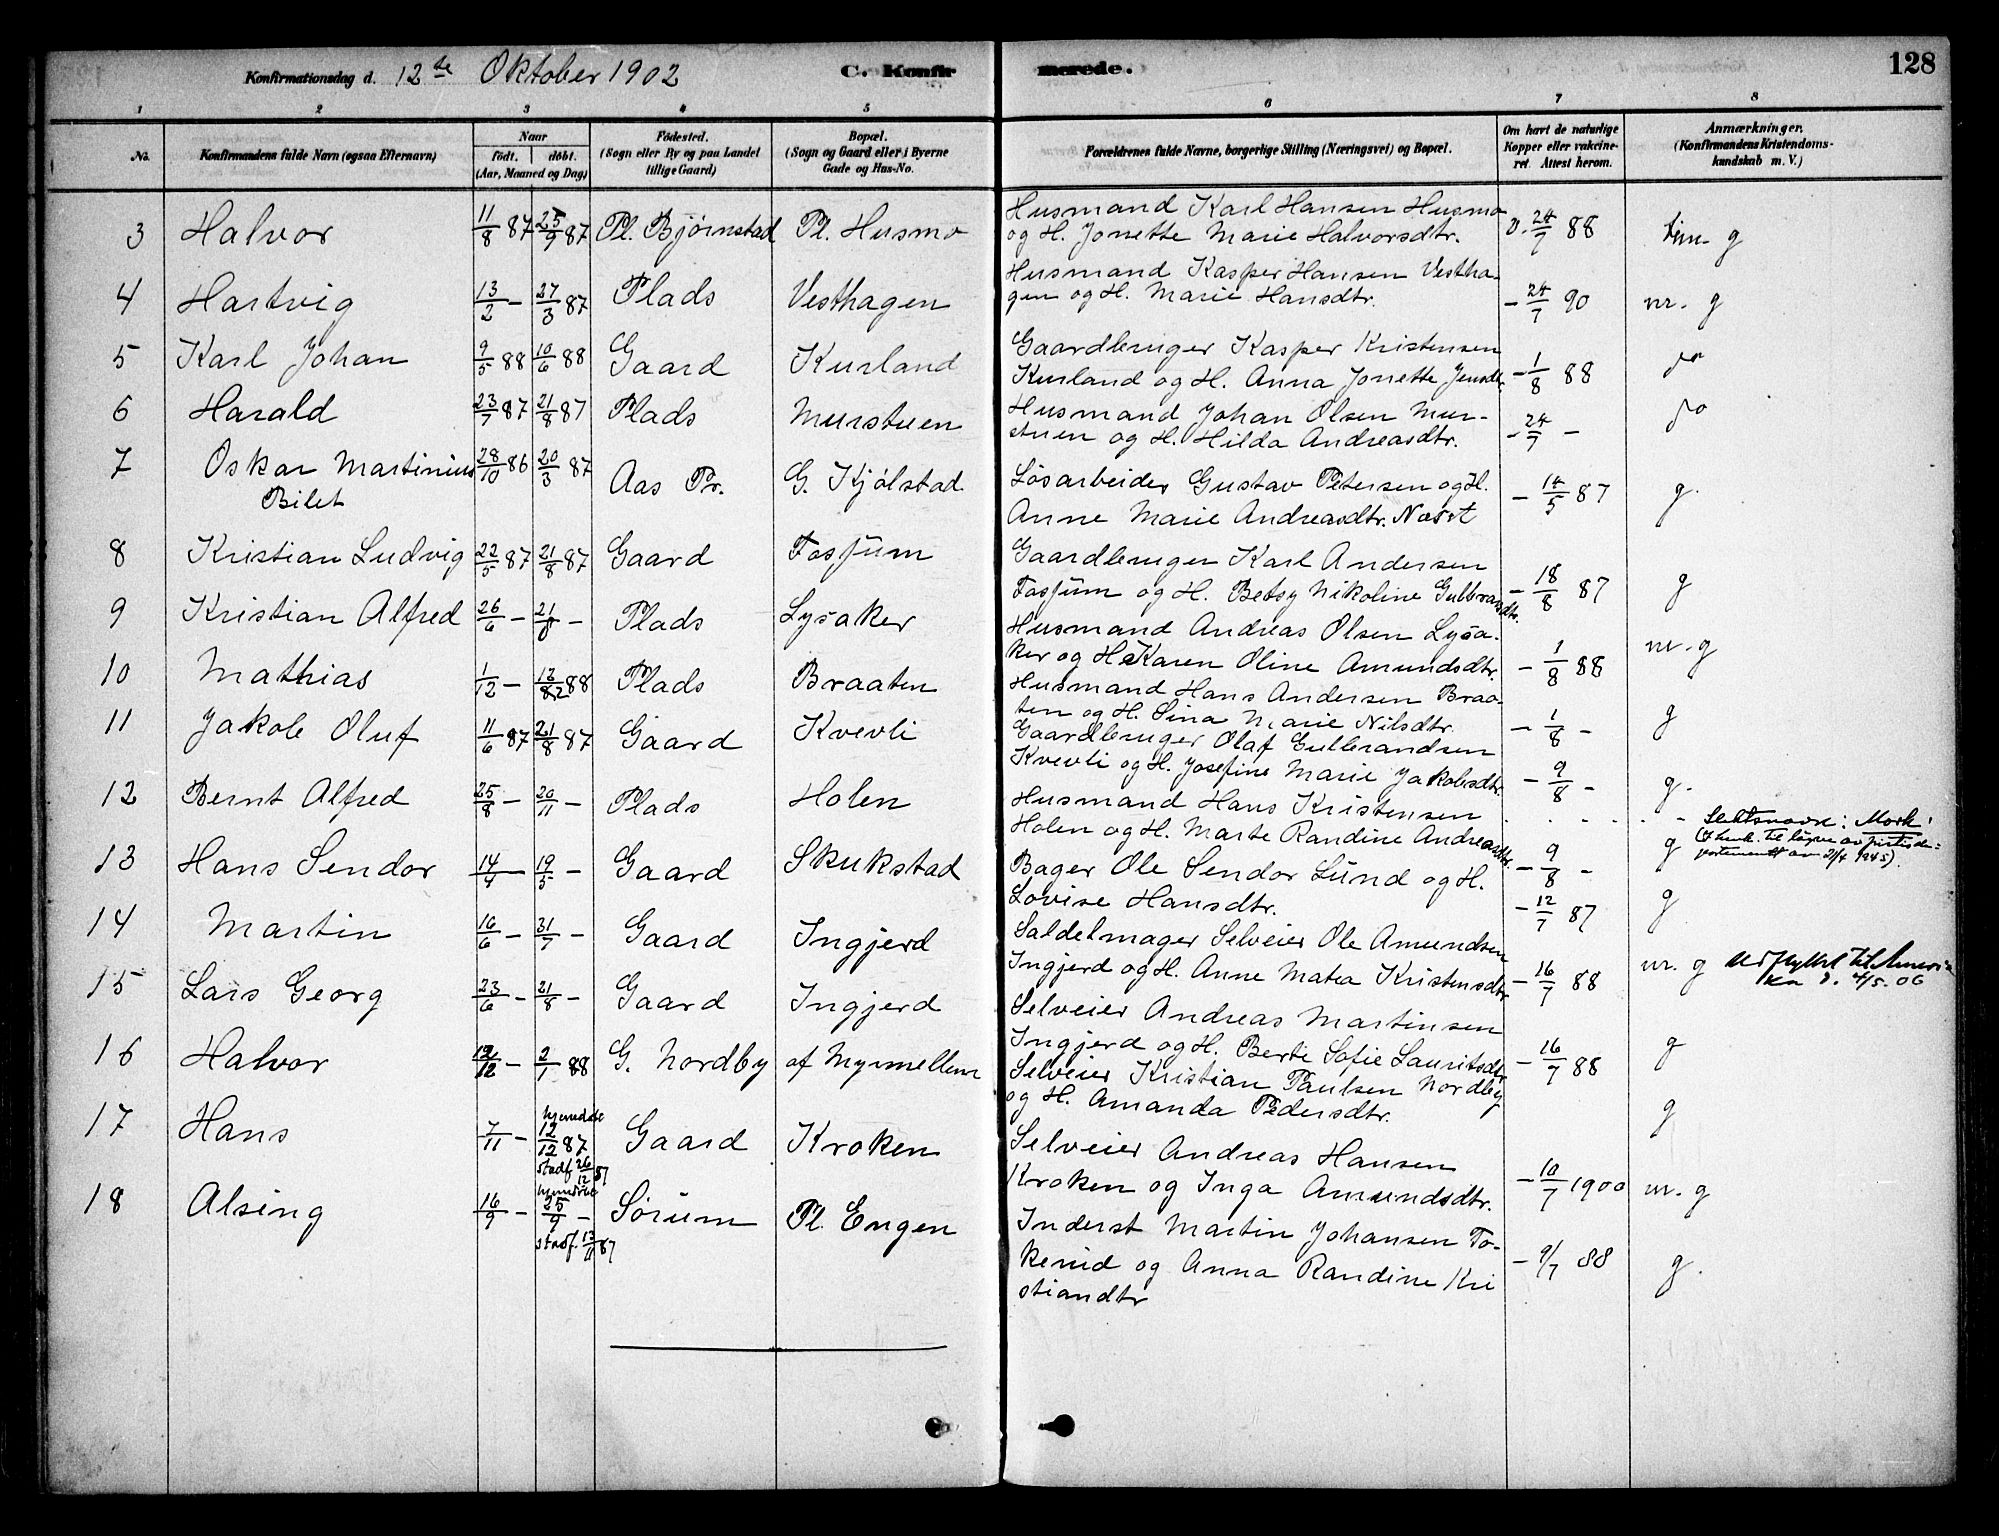 Konfirmationsdag d. 12te Oktober 1902 C. Konfirmerede. 128
1 2 3 4 5 6 7 8
No. Konfirmandens fulde Navn (ogsaa Efternavn) Naar født. døbt. (Aar, Maaned og Dag) Fødested. (Sogn eller By og paa Landet tillige Gaard) Bopæl. (Sogn og Gaard eller i Byerne Gade og Hus-No. Forældrenes fulde Navne, borgerlige Stilling (Næringsvei) og Bopæl. Om havt de naturlige Kopper eller vakcineret. Attest herom. Anmærkninger. (Konfirmandens Kristendomskundskab m. V.)
3 Halvor 11/8 87 25/9 87 Pl. Bjørnstad Pl. Husmo
Husmand Karl Hansen Husmo
og H. Jonette Marie Halvorsdtr. v. 24/7 88 g
4 Hartvig 13/2 - 27/3 87 Plads Vesthagen
Husmand Kasper Hansen Vestha-
gen og H. Marie Hansdtr. - 24/7 90 nr. g
5 Karl Johan 9/5 88 10/6 88 Gaard Kurland
Gaardbruger Kasper Kristensen
Kurland og H. Anna Jonette Jensdtr. - 1/8 88 do
6 Harald 23/7 87 21/8 87 Plads Murstuen
Husmand Johan Olsen Mur-
stuen og H. Hilda Andreasdtr. - 24/7 - do
7 Oskar Martinius 28/10 86 20/3 87 Aas Pr. G. Kjølstad
Bilet
Løsarbeider Gustav Petersen og H.
Anne Marie Andreasdtr. Næset - 14/5 87 g.
8 Kristian Ludvig 22/5 87 21/8 87 Gaard Fosjum
Gaardbruger Karl Andersen
Fosjum og H. Betsy Nikoline Gulbrandsdtr. - 18/8 87 g
9 Kristian Alfred 26/6 - 21/8 - Plads Lysaker
Husmand Andreas Olsen Lysa-
ker og H. Karen Oline Amundsdtr. - 1/8 88 nr. g
10 Mathias 1/12 - 12/2 88 Plads Braaten
Husmand Hans Andersen Braa-
ten og H. Sina Marie Nilsdtr. - 1/8 - g
11 Jakob Oluf 11/6 87 21/8 87 Gaard Kvevli
Gaardbruger Olaf Gulbrandsen
Kvevli og H. Josefine Marie Jakobsdtr. - 9/8 - g.
12 Bernt Alfred 25/8 - 20/11 - Plads Holen
Husmand Hans Kristensen
Holen og H. Marte Randine Andreasdtr. - 9/8 - g Slektsnavn: Mork!
13 Hans Sendor 14/4 - 19/5 - Gaard Skukstad
Bager Ole Sendor Lund og H.
Lovise Hansdtr. - 12/7 87 g
14 Martin 16/6 - 31/7 - Gaard Ingjerd
Saldelmager Selveier Ole Amundsen
Ingjerd og H. Anne Matea Kristensdtr - 16/7 88 nr. g Udflyttet til Ameri-
ka d. 4/5.06
15 Lars Georg 23/6 - 21/8 - Gaard Ingjerd
Selveier Andreas Martinsen
Ingjerd og H. Berte Sofie Lauritsdtr - 16/7 88 g
16 Halvor 12/12 - 2/1 88 G. Nordby af Myrmellem
Selveier Kristian Paulsen Nordby
og H. Amanda Pedersdtr. g
17 Hans 7/11 - hjemdøbt 12/12 87 stadf. 26/12 87 Gaard Kroken
Selveier Andreas Hansen
Kroken og Inga Amundsdtr. - 10/7 1900 nr. g
18 Alsing 16/9 - hjemdøbt 25/9 - stadf. 13/11 87 Sørum Pl. Engen
Inderst Martin Johansen To-
kerud og Anna Randine Kri
stiandtr - 9/7 88 g.